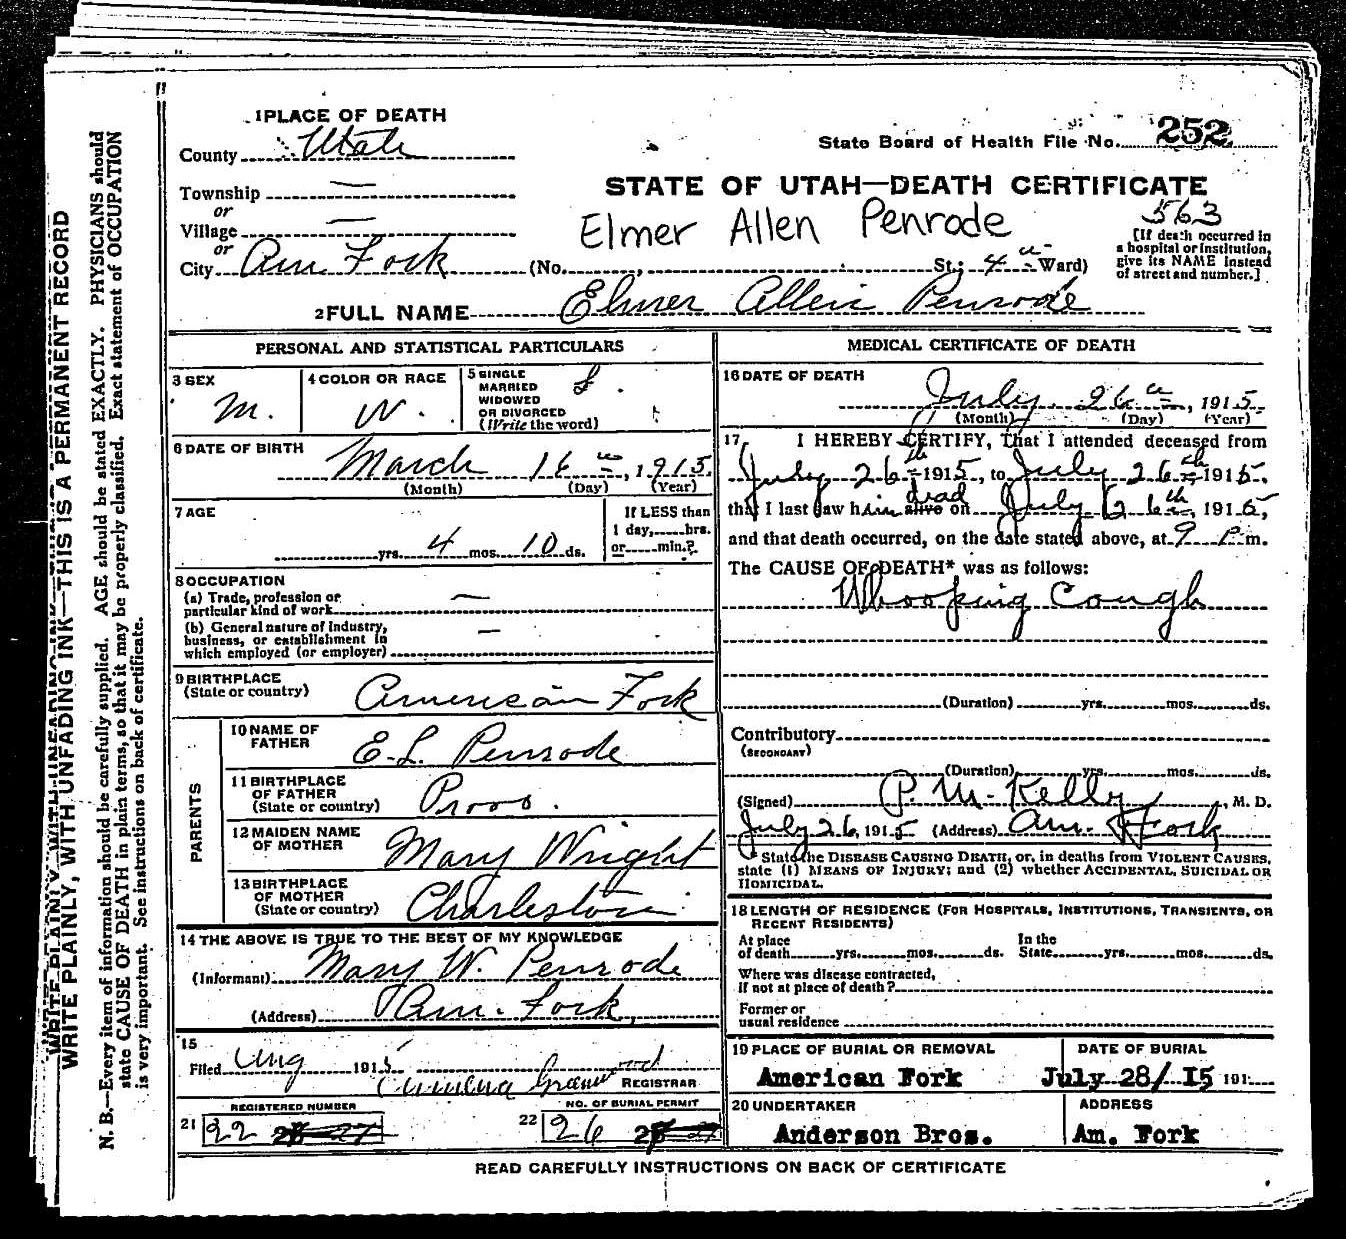 1 PLACE OF DEATH
County Utah
State Board of Health File No. 252
Township —
or
Village —
or
City Am Fork (No. , St.; 4th Ward)
STATE OF UTAH—DEATH CERTIFICATE
Elmer Allen Penrode
563
[If death occurred in a hospital or institution, give its NAME instead of street and number.]
2 FULL NAME Elmer Allen Penrode
PERSONAL AND STATISTICAL PARTICULARS
3 SEX
M.
4 COLOR OR RACE
W.
5 SINGLE
MARRIED
WIDOWED
OR DIVORCED
(Write the word)
S.
6 DATE OF BIRTH
March 16th, 1915.
(Month) (Day) (Year)
7 AGE
yrs. 4 mos. 10 ds.
If LESS than
1 day, hrs.
or min.?
8 OCCUPATION
(a) Trade, profession or
particular kind of work —
(b) General nature of industry,
business, or establishment in
which employed (or employer) —
9 BIRTHPLACE
(State or country) American Fork
PARENTS
10 NAME OF
FATHER E. L. Penrode
11 BIRTHPLACE
OF FATHER
(State or country) Provo.
12 MAIDEN NAME
OF MOTHER Mary Wright
13 BIRTHPLACE
OF MOTHER
(State or country) Charleston
14 THE ABOVE IS TRUE TO THE BEST OF MY KNOWLEDGE
(Informant) Mary W. Penrode
(Address) Am. Fork,
15
Filed Aug 1915
REGISTRAR
REGISTERED NUMBER
21 22
NO. OF BURIAL PERMIT
22 26
MEDICAL CERTIFICATE OF DEATH
16 DATE OF DEATH
July 26th, 1915.
(Month) (Day) (Year)
17 I HEREBY CERTIFY, That I attended deceased from
July 26th 1915, to July 26th 1915.
that I last saw him alive dead on July 26th, 1915,
and that death occurred, on the date stated above, at 9 P. m.
The CAUSE OF DEATH* was as follows:
Whooping Cough
(Duration) yrs. mos. ds.
Contributory
(SECONDARY)
(Duration) yrs. mos. ds.
(Signed) P. M. Kelly, M. D.
July 26, 1915 (Address) Am. Fork
* State the DISEASE CAUSING DEATH, or, in deaths from VIOLENT CAUSES,
state (1) MEANS OF INJURY; and (2) whether ACCIDENTAL, SUICIDAL OR
HOMICIDAL.
18 LENGTH OF RESIDENCE (FOR HOSPITALS, INSTITUTIONS, TRANSIENTS, OR
RECENT RESIDENTS)
At place
of death yrs. mos. ds.
In the
State yrs. mos. ds.
Where was disease contracted,
if not at place of death?
Former or
usual residence
19 PLACE OF BURIAL OR REMOVAL
American Fork
DATE OF BURIAL
July 28/ 15 191
20 UNDERTAKER
Anderson Bros.
ADDRESS
Am. Fork
READ CAREFULLY INSTRUCTIONS ON BACK OF CERTIFICATE
WRITE PLAINLY, WITH UNFADING INK—THIS IS A PERMANENT RECORD
N. B.—Every item of information should be carefully supplied. AGE should be stated EXACTLY. PHYSICIANS should
state CAUSE OF DEATH in plain terms, so that it may be properly classified. Exact statement of OCCUPATION
is very important. See instructions on back of certificate.